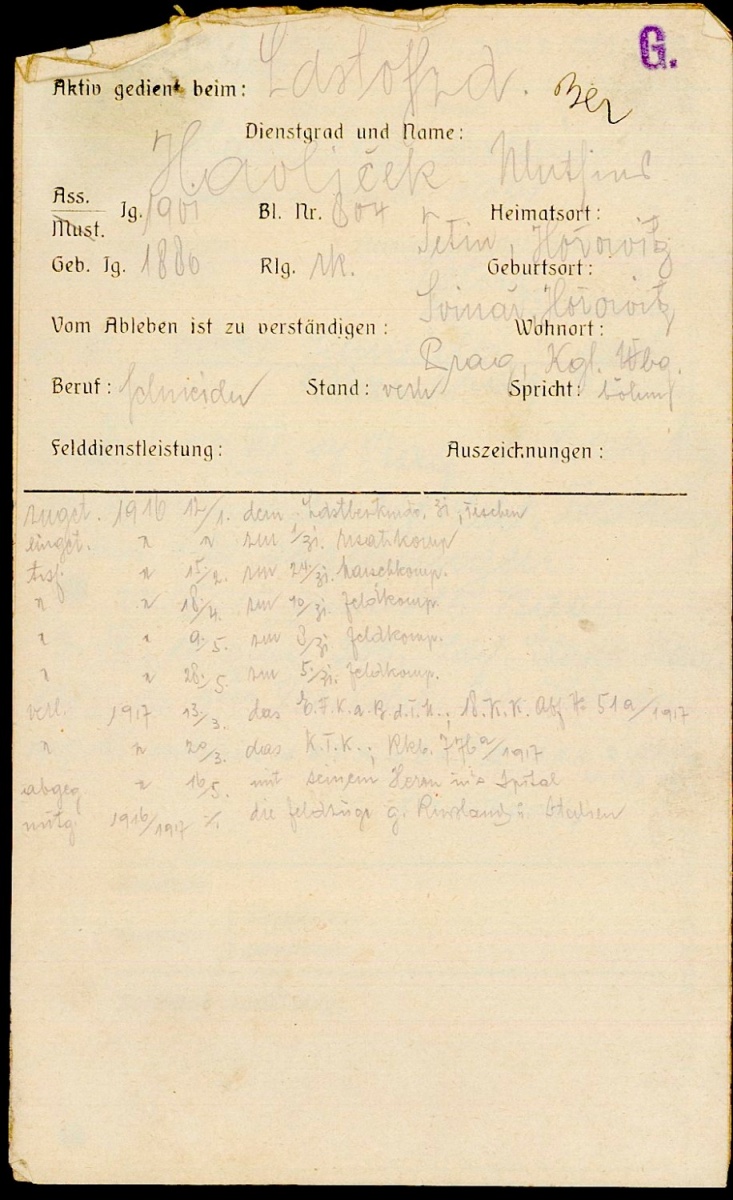 G.
Aktiv gedient beim: Ldstoffzd.
Dienstgrad und Name:
Havliček Mathias
Ass. Jg. 1901 Bl. Nr. 604 Heimatsort:
Must. Tetin, Hořowitz
Geb. Jg. 1880 Rlg. rk. Geburtsort:
Svinař, Hořowitz
Vom Ableben ist zu verständigen: Wohnort:
Prag, Kgl. Wbg.
Beruf: Schneider Stand: verh Spricht: böhm
Felddienstleistung: Auszeichnungen:
zuget. 1916 12/1. dem zi, Teschen
einget. " " zur 1/zi. Ersatzkomp
trsf. " 15/2. zur 24/zi. Marschkomp.
" " 18/4. zur 10/zi. Feldkomp.
" " 9./5. zur 8/zi. Feldkomp.
" " 28./5. zur 5./zi. Feldkomp.
verl. 1917 13/3. das E.F.K.a.B.d.T.M.; B.K.K. Abf 51a/1917
" " 20/3. das K.T.K.; Rkb. 776a/1917
abgeg " 16/5. mit seinem Herrn ins Spital
mitg. 1916/1917 die Feldzüge g. Russland u. Italien